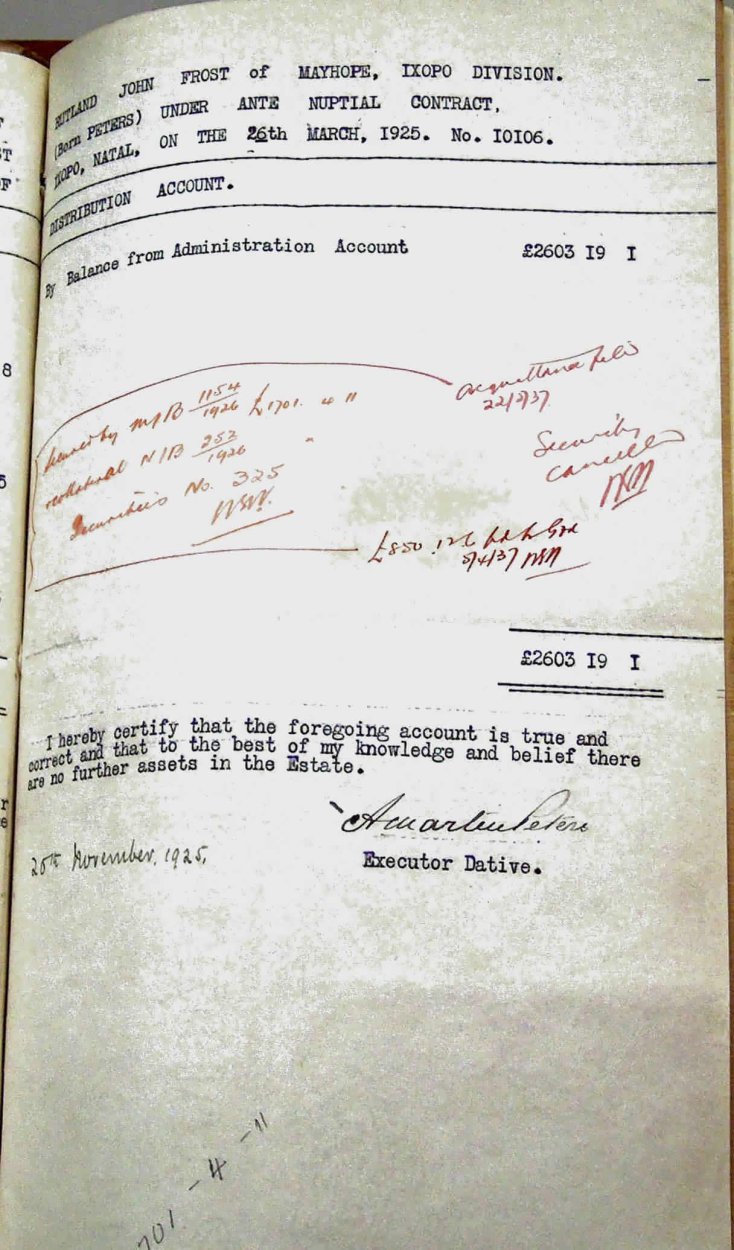 RUTLAND JOHN FROST of MAYHOPE, IXOPO DIVISION.
(Born PETERS) UNDER ANTE NUPTIAL CONTRACT,
IXOPO, NATAL, ON THE 26th MARCH, I925. No. I0I06.
DISTRIBUTION ACCOUNT.
By Balance from Administration Account £2603 I9 I
Acquittance filed
22/2/37
Secured by M/B 1154/1926 £1701. 4. 11
collateral N/B 252/1926 "
Securities No. 325
Security
cancelled
£850. 12.
5/4/37
£2603 I9 I
I hereby certify that the foregoing account is true and
correct and that to the best of my knowledge and belief there
are no further assets in the Estate.
A Martin Peters
26th November, 1925.
Executor Dative.
701 - 4 - 11